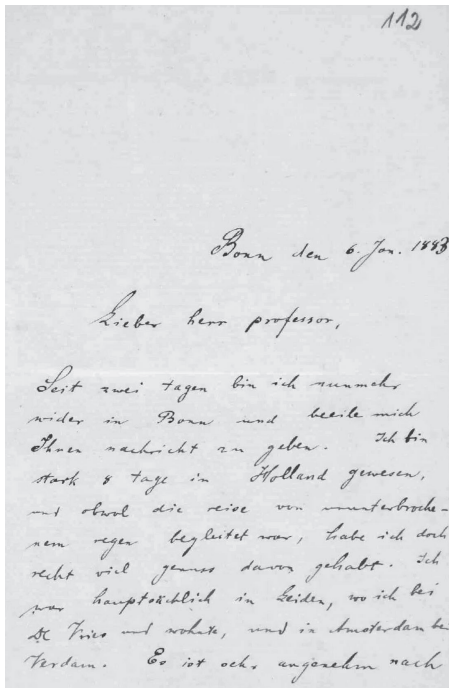 112
Bonn den 6. Jan. 1883
Lieber herr professor,
Seit zwei tagen bin ich nunmehr
wider in Bonn und beeile mich
Ihnen nachricht zu geben. Ich bin
stark 8 tage in Holland gewesen,
und obwol die reise von ununterbroche-
nem regen begleitet war, habe ich doch
recht viel genuss davon gehabt. Ich
war hauptsächlich in Leiden, wo ich bei
De Vries und wohnte, und in Amsterdam bei
Verdam. Es ist sehr angenehm nach